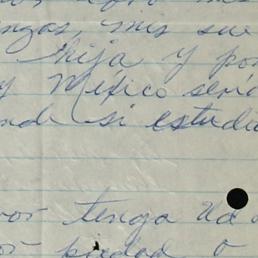 mis sue
hija y por
y México será
nde si estudia
vor tenga Ud
or piedad o